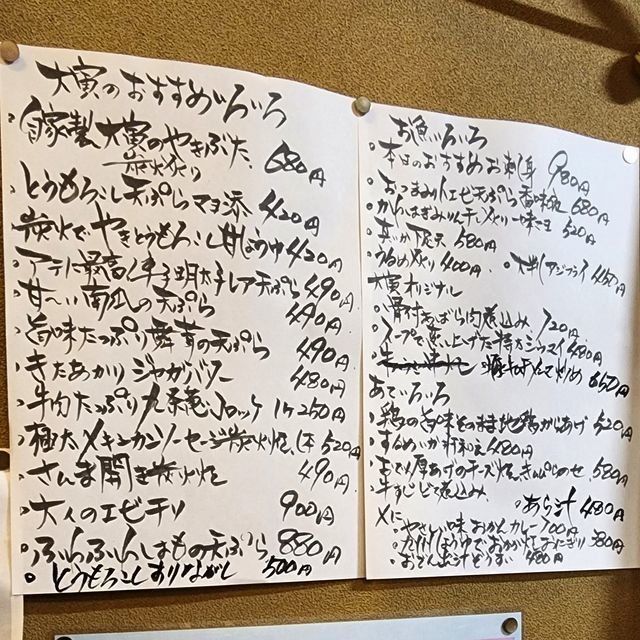 大寅のおすすめいろいろ
・自家製大寅のやきぶた 680円
炭火炙り
・とうもろこし天ぷらマヨ添 420円
・炭火でやきとうもろこし甘しょうゆ 420円
・アテに最高!辛子明太子レア天ぷら 490円
・甘〜い南瓜の天ぷら 490円
・旨味たっぷり舞茸の天ぷら 490円
・きたあかりジャガバター 480円
・牛肉たっぷり九条葱コロッケ 1ケ250円
・極太メキシカンソーセージ炭火焼 1本520円
・さんま開き炭火焼 490円
・大イのエビチリ 900円
・ふわふわしはもの天ぷら 880円
・とうもろこしすりながし 500円
お魚いろいろ
・本日のおすすめお刺身 980円
・おつまみ エビ天ぷら 680円
・かわはぎみりん干し炙り一味マヨ 520円
・天 580円
・うるめ炙り 400円 ・大判アジフライ 450円
大寅オリジナル
・骨付きばら肉煮込み 720円
・スープで炊い上げた特大シュウマイ 480円
・炒め 650円
あていろいろ
・鶏の旨味そのまま地鶏からあげ 520円
・するめいか 和え 480円
・厚あげのチーズ焼、きんぴらのせ 580円
・牛すじどて煮込み
・あら汁 480円
〆に
・やさしい味おかんカレー 700円
・九州しょうゆでおかか焼おにぎり 380円
・おでん出汁ぞうすい 480円